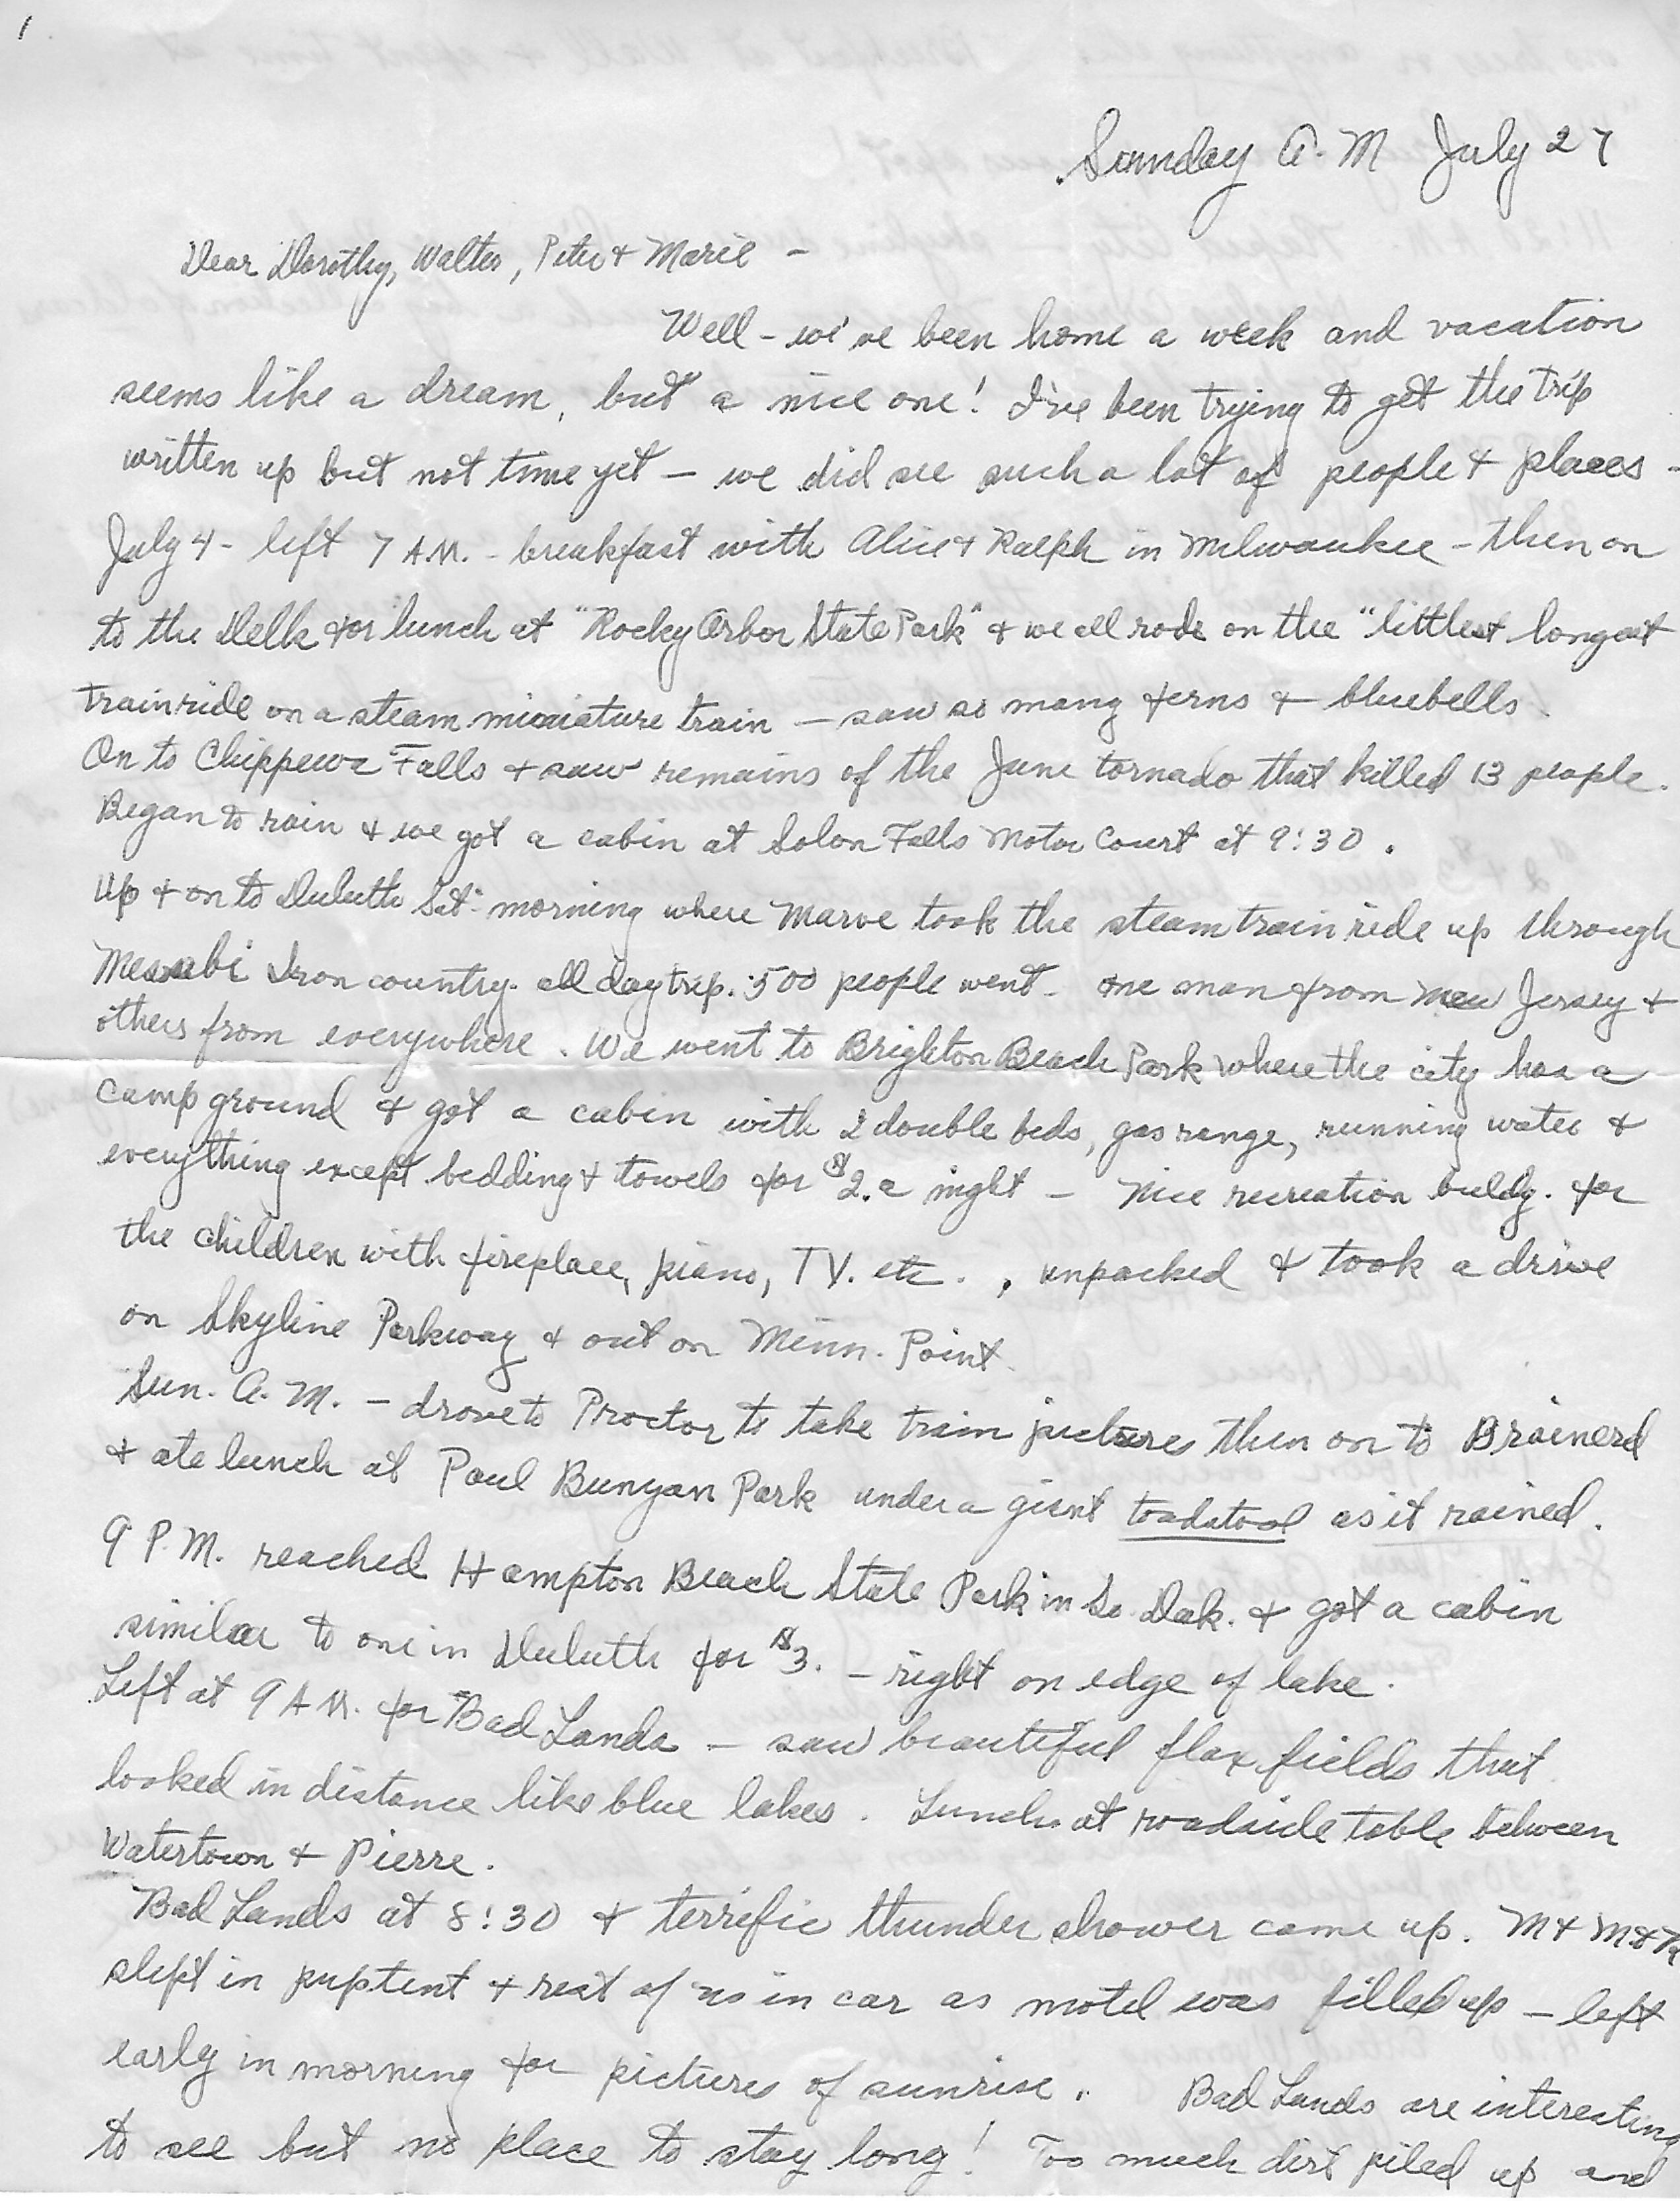 1
Sunday A.M July 27
Dear Dorothy, Walter, Peter & Marie -
Well - we've been home a week and vacation
seems like a dream, but a nice one! I've been trying to get the trip
written up but not time yet - we did see such a lot of people & places -
July 4 - left 7 A.M. - breakfast with Alice & Ralph in Milwaukee - then on
to the Dells for lunch at "Rocky Arbor State Park" & we all rode on the "littlest longest
train ride on a steam miniature train - saw so many ferns & bluebells.
On to Chippewa Falls & saw remains of the June tornado that killed 13 people.
Began to rain & we got a cabin at Solon Falls Motor Court at 9:30.
Up & on to Duluth Sat. morning where Marve took the steam train ride up through
Mesabi Iron country. all day trip. 500 people went - one man from New Jersey &
others from everywhere. We went to Brighton Beach Park where the city has a
camp ground & got a cabin with 2 double beds, gas range, running water &
everything except bedding & towels for $2. a night - Nice recreation buldg. for
the children with fireplace, piano, TV. etc.. unpacked & took a drive
on Skyline Parkway & out on Minn. Point.
Sun. A.M. - drove to Proctor to take train pictures then on to Brainerd
& ate lunch at Paul Bunyan Park under a giant toadstool as it rained.
9 P.M. reached Hampton Beach State Park in So. Dak. & got a cabin
similar to one in Duluth for $3. - right on edge of lake.
Left at 9 A.M. for Bad Lands - saw beautiful flax fields that
looked in distance like blue lakes. Lunch at roadside table between
Watertown & Pierre.
Bad Lands at 8:30 & terrific thunder shower came up. M & M &
slept in pup tent & rest of us in car as motel was filled up - left
early in morning for pictures of sunrise. Bad Lands are interesting
to see but no place to stay long! Too much dirt piled up and